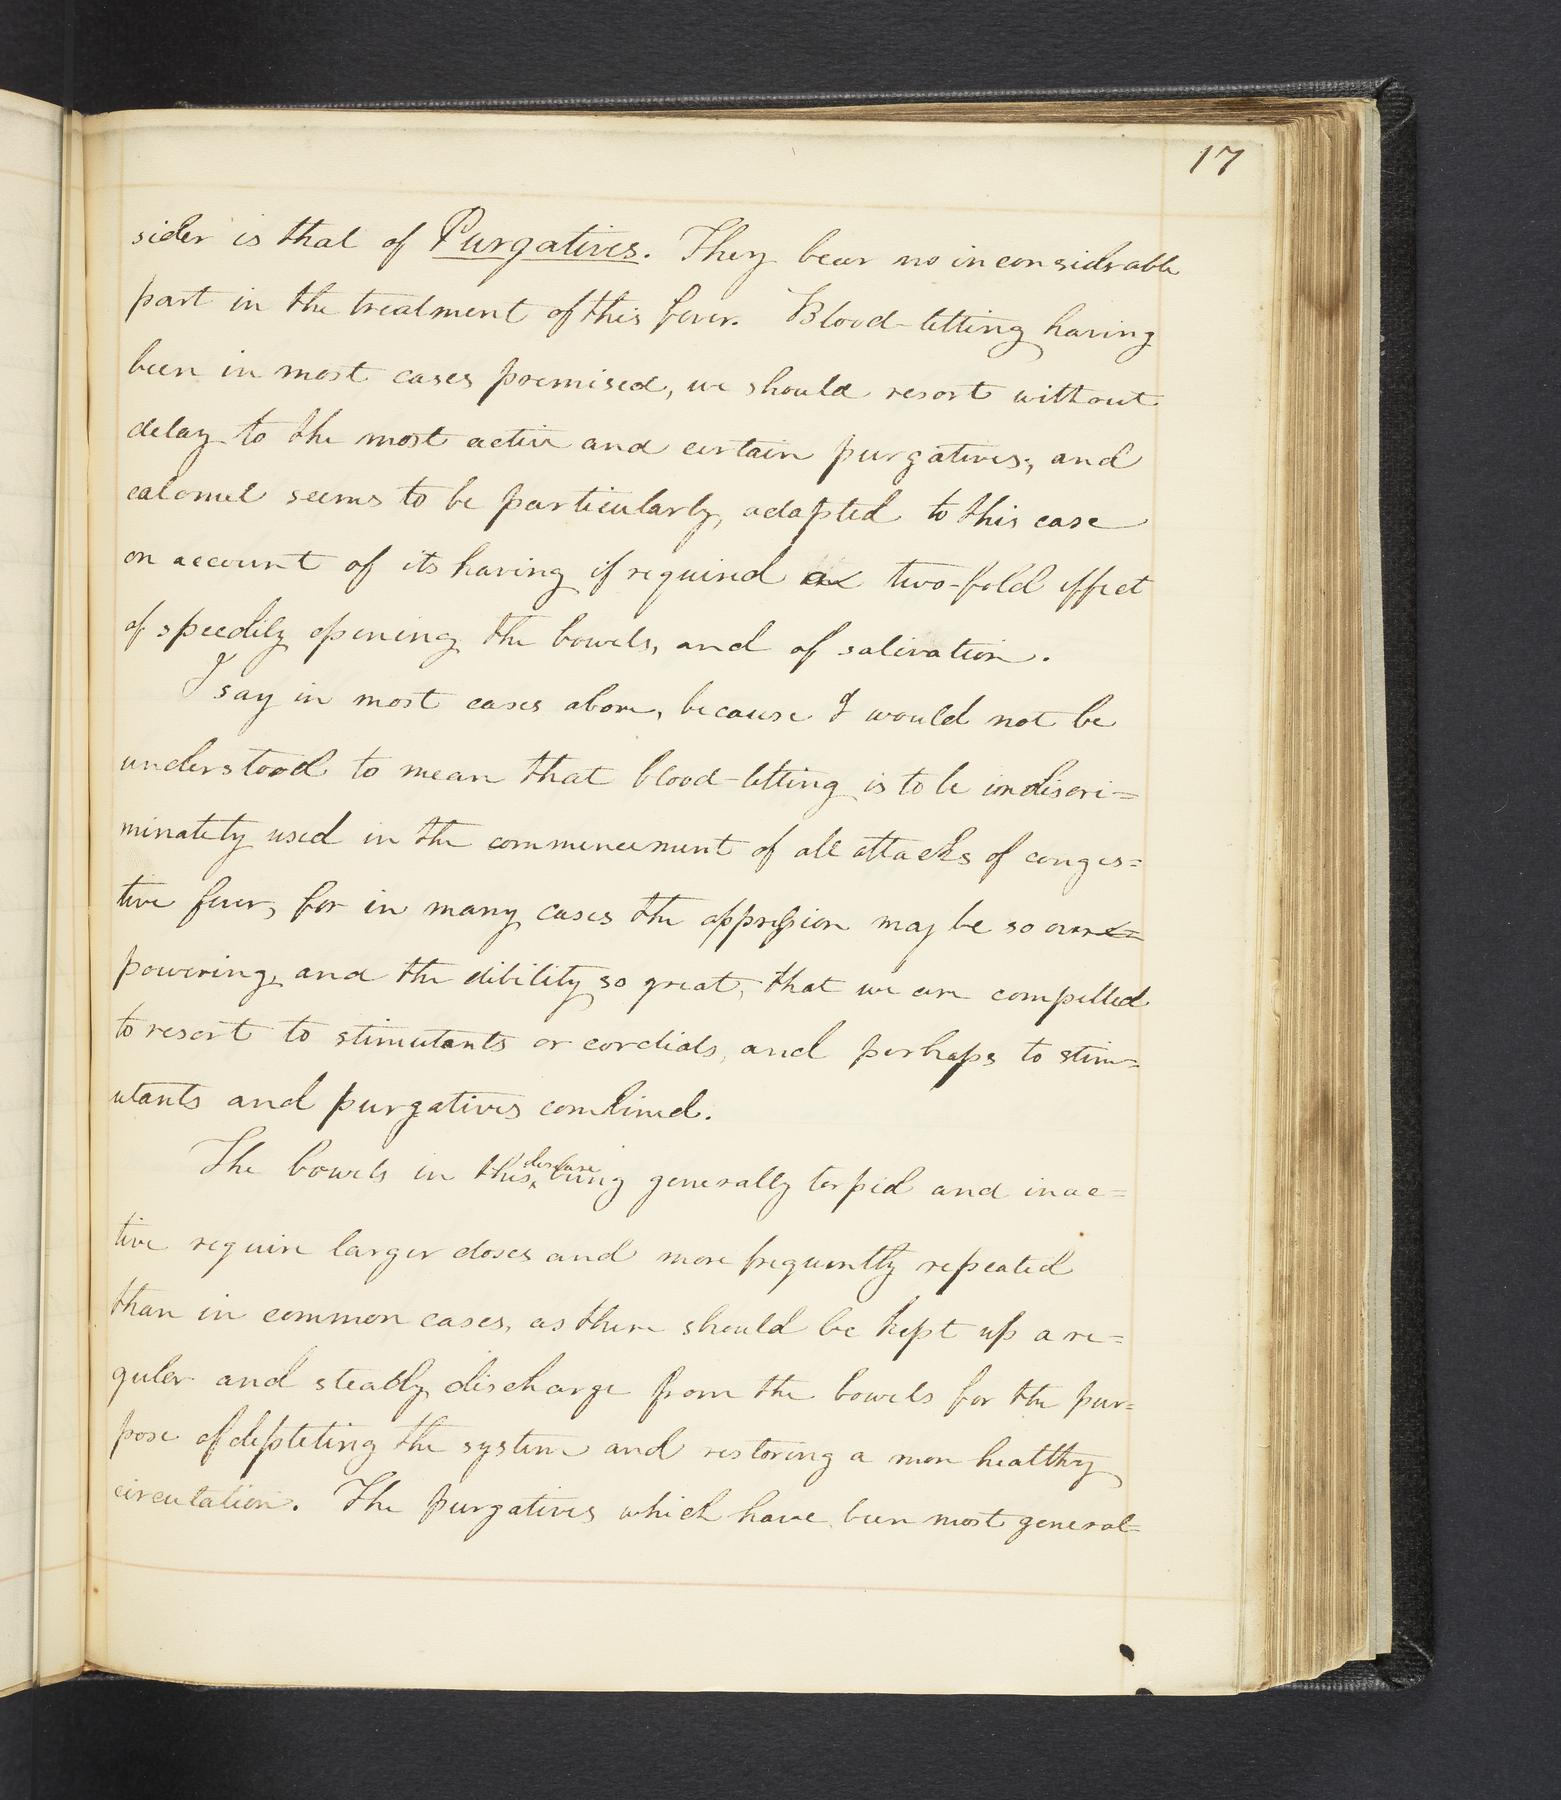 17
sider is that of Purgatives. They bear no inconsiderable
part in the treatment of this fever. Blood-letting having
been in most cases premised, we should resort without
delay to the most active and certain purgatives; and
calomel seems to be particularly adapted to this case
on account of its having if required a two-fold effect
of speedily opening the bowels, and of salivation.
I say in most cases above, because I would not be
understood to mean that blood-letting is to be indiscri=
minately used in the commencement of all attacks of conges=
tive fever, for in many cases the oppression may be so over=
powering, and the debility so great, that we are compelled
to resort to stimutants or cordials, and perhaps to stim=
utants and purgatives combined.
The bowels in this disease being generally torpid and inac=
tive require larger doses and more frequently repeated
than in common cases, as there should be kept up a re=
guler and steady discharge from the bowels for the pur=
pose of depleting the system and restoring a more healthy
circulation. The purgatives which have been most general=